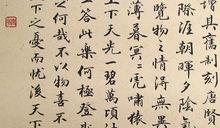 增其舊制刻唐賢
際涯朝暉夕陰氣
覽物之情得無異
暮冥〻虎嘯猿
上下天光一碧萬頃
答此樂何極登
之何哉不以物喜不
下之憂而憂後天下